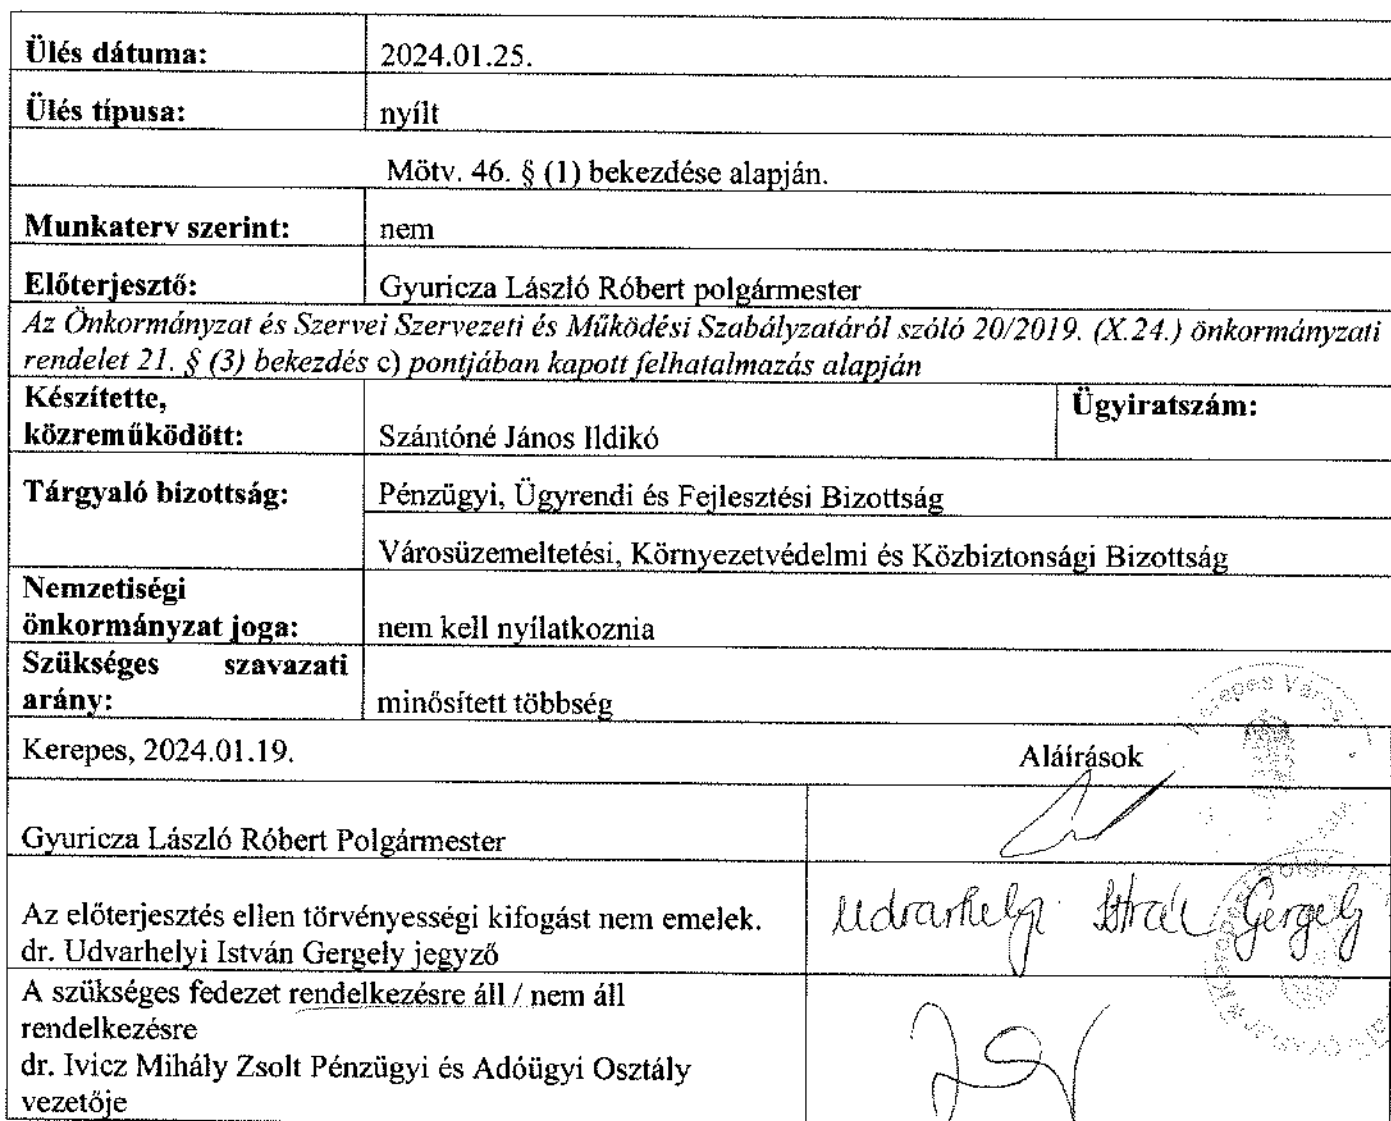 Ülés dátuma: 2024.01.25.
Ülés típusa: nyílt
Mötv. 46. § (1) bekezdése alapján.
Munkaterv szerint: nem
Előterjesztő: Gyuricza László Róbert polgármester
Az Önkormányzat és Szervei Szervezeti és Működési Szabályzatáról szóló 20/2019. (X.24.) önkormányzati
rendelet 21. § (3) bekezdés c) pontjában kapott felhatalmazás alapján
Készítette, Ügyiratszám:
közreműködött: Szántóné János Ildikó
Tárgyaló bizottság: Pénzügyi, Ügyrendi és Fejlesztési Bizottság
Városüzemeltetési, Környezetvédelmi és Közbiztonsági Bizottság
Nemzetiségi
önkormányzat joga: nem kell nyilatkoznia
Szükséges szavazati
arány: minősített többség
Kerepes, 2024.01.19. Aláírások
Gyuricza László Róbert Polgármester
Az előterjesztés ellen törvényességi kifogást nem emelek.
dr. Udvarhelyi István Gergely jegyző
Udvarhelyi István Gergely
A szükséges fedezet rendelkezésre áll / nem áll
rendelkezésre
dr. Ivicz Mihály Zsolt Pénzügyi és Adóügyi Osztály
vezetője